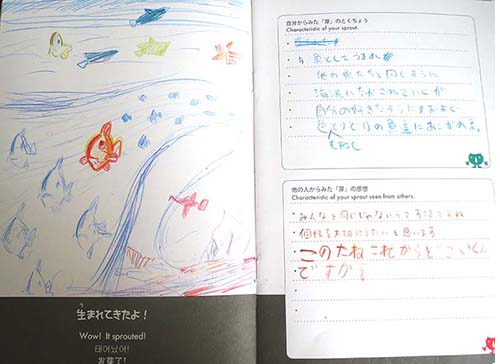 生まれてきたよ!
Wow! It sprouted!
태어났어!
发芽了!
自分からみた「芽」のとくちょう
Characteristic of your sprout.
魚としてうまれ
他の魚たちと同じように
海流にながされていくか
自分の好きなようにおよぐ
色とりどりの魚
他の人からみた「芽」の感想
Characteristic of your sprout seen from others.
みんなと同じじゃないってすてきだね
個性を大切にしたいと思います
このたねこれからどこいくん
ですか?